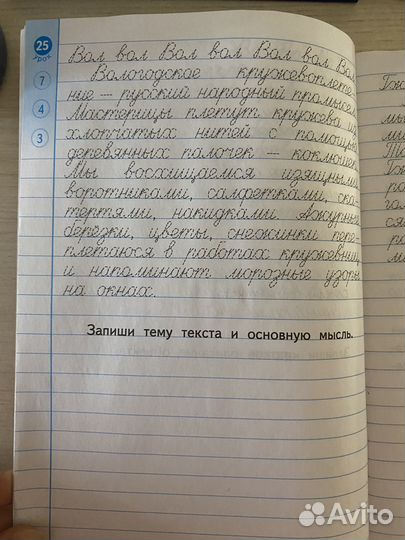 25
урок
7
4
3
Вол вол Вол вол Вол вол Вол
Вологодское кружевоплете-
ние — русский народный промысел.
Мастерицы плетут кружева из
хлопчатых нитей с помощью
деревянных палочек — коклюшек.
Мы восхищаемся изящными
воротниками, салфетками, ска-
тертями, накидками. Ажурные
берёзки, цветы, снежинки пере-
плетаются в работах кружевниц
и напоминают морозные узоры
на окнах.
Запиши тему текста и основную мысль.
Avito